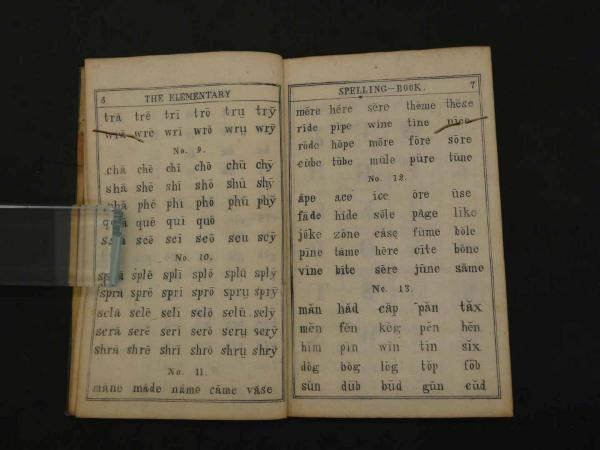 6 THE ELEMENTARY
trā trē trī trō trṳ trȳ
wrā wrē wrī wrō wrṳ wrȳ
No. 9.
chā chē chī chō chū chȳ
shā shē shī shō shū shȳ
phā phē phī phō phū phȳ
quā quē quī quō
scē scī scō scu scȳ
No. 10.
splā splē splī splō splū splȳ
sprā sprē sprī sprō sprṳ sprȳ
sclā sclē sclī sclō sclū sclȳ
scrā scrē scrī scrō scrṳ scrȳ
shrā shrē shrī shrō shrṳ shrȳ
No. 11.
māne māde nāme cāme vāse
SPELLING-BOOK. 7
mēre hēre sēre thēme thēse
rīde pīpe wīne tīne nīce
rōde hōpe mōre fōre sōre
cūbe tūbe mūle pūre tūne
No. 12.
āpe ace īce ōre ūse
fāde hīde sōle pāge līke
jōke zōne cāse fūme bōle
pīne tāme hēre cīte bōne
vīne bīte sēre jūne sāme
No. 13.
măn hăd căp păn tăx
mĕn fĕn kĕg pĕn hĕn
hĭm pĭn wĭn tĭn sĭx
dŏg bŏg lŏg tŏp fŏb
sŭn dŭb bŭd gŭn cŭd